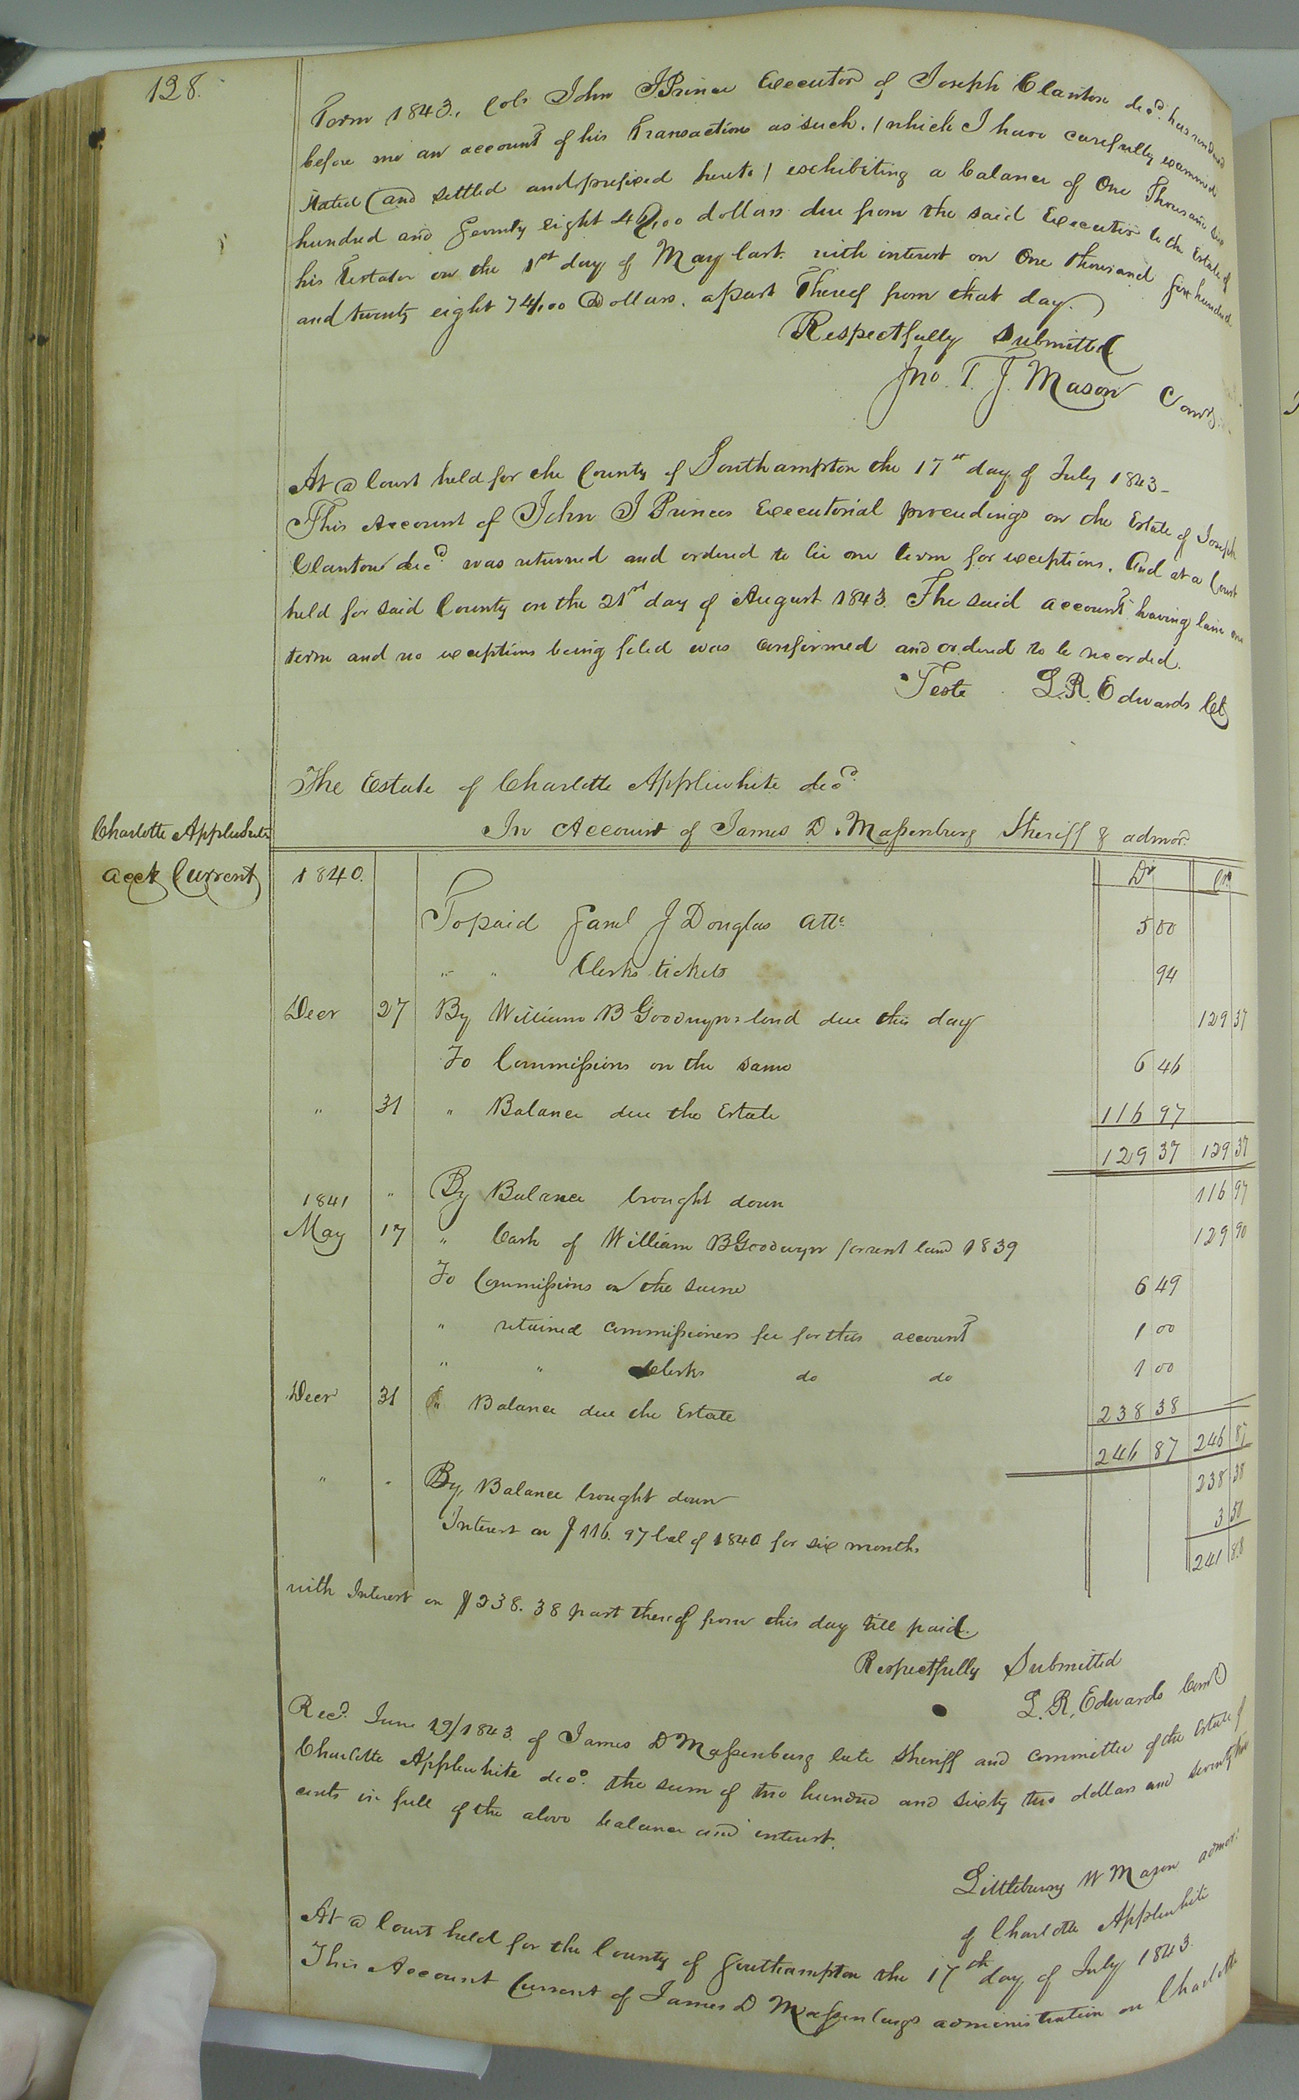 138.
Term 1843, Col. John J Prince Executor of Joseph Clanton decd. has rendered
before me an account of his Transactions as such, (which I have carefully examined
stated and settled and prefixed hereto) exhibiting a balance of One Thousand
hundred and Seventy eight 46/100 dollars due from the said Executor to the Estate of
his Testator on the 1st day of May last with interest on One thousand hundred
and twenty eight 74/100 Dollars, a part Thereof from that day.
Respectfully Submitted
Jno. T. J. Mason Comr
At a Court held for the County of Southampton the 17th day of July 1843-
This Account of John J Princes Executorial proceedings on the Estate of Joseph
Clanton decd was returned and ordered to lie one term for exceptions. And at a Court
held for said County on the 21st day of August 1843. The said account having lain one
term and no exceptions being filed was confirmed and ordered to be recorded.
Teste L. R. Edwards Clk
The Estate of Charlotte Applewhite decd
In Account of James D. Massenburg Sheriff & admor.
Charlotte Applewhite
acct Current
1840. Dr Cr
To paid Saml J Douglas atto 5 00
" " Clerks tickets 94
Decr 27 By William B Goodwyns bond due this day 129 37
To Commissions on the same 6 46
" 31 " Balance due the Estate 116 97
129 37 129 37
1841 " By Balance brought down 116 97
May 17 " Cash of William B Goodwyn for rent land 1839 129 90
To Commissions on the same 6 49
" retained commissioners fee for this account 1 00
" " Clerks do do 1 00
Decr 31 " Balance due the Estate 238 38
246 87 246 87
" " By Balance brought down 238 38
Interest on $116.97 bal of 1840 for six months 3 50
241 88
with Interest on $238.38 part thereof from this day till paid.
Respectfully Submitted
L. R. Edwards Comr
Recd. June 19/1843 of James D Massenburg late Sheriff and committee of the Estate of
Charlotte Applewhite decd. the sum of two hundred and sixty two dollars and seventy five
cents in full of the above balance and interest.
Littlebury W Mason admor.
of Charlotte Applewhite
At a Court held for the County of Southampton the 17th day of July 1843.
This Account Current of James D Massenburgs administration on Charlotte